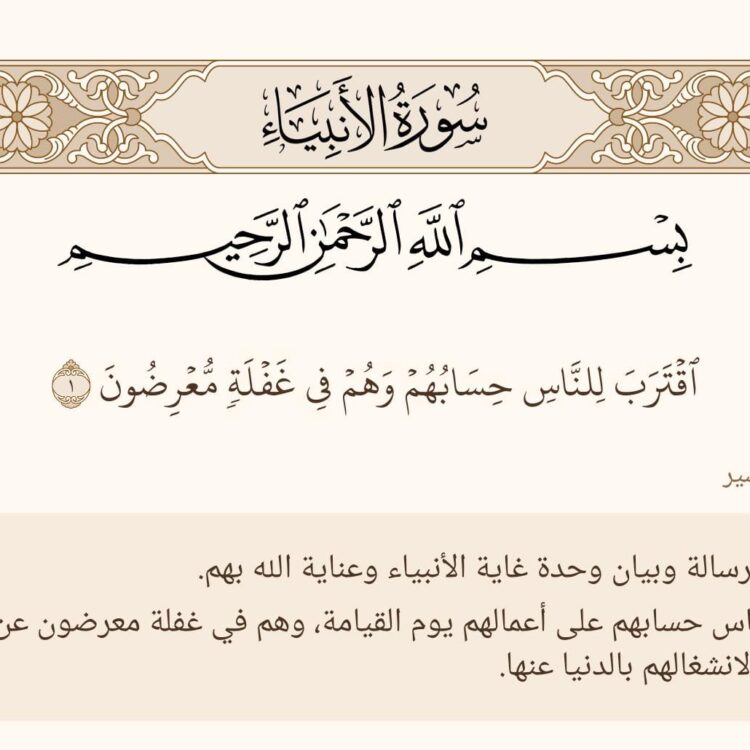 سُورَةُ الأَنبِيَاءِ
بِسۡمِ ٱللَّهِ ٱلرَّحۡمَٰنِ ٱلرَّحِيمِ
ٱقۡتَرَبَ لِلنَّاسِ حِسَابُهُمۡ وَهُمۡ فِي غَفۡلَةٖ مُّعۡرِضُونَ ١
رسالة وبيان وحدة غاية الأنبياء وعناية الله بهم.
اس حسابهم على أعمالهم يوم القيامة، وهم في غفلة معرضون عن
لانشغالهم بالدنيا عنها.